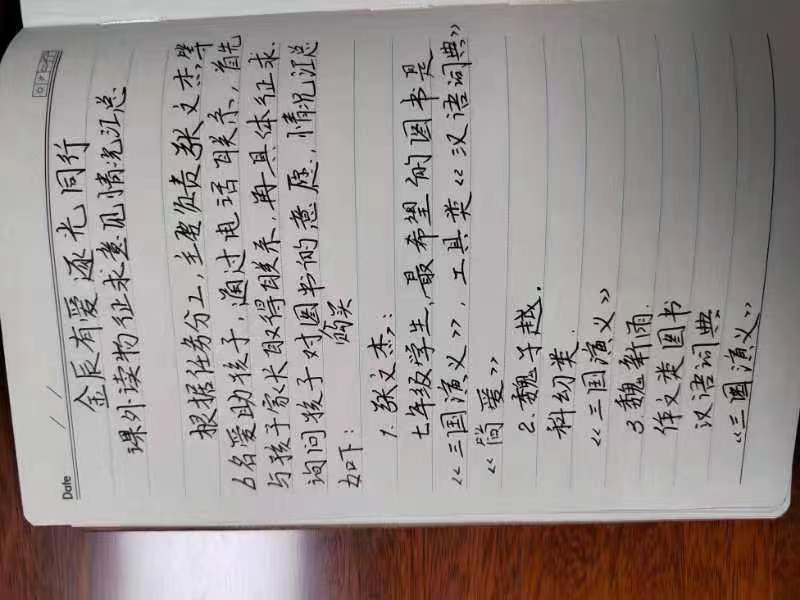 Date
金辰有爱 逐光同行
课外读物征求意见情况汇总
根据任务分工,主要负责张文杰等
6名爱助孩子,通过电话联系,首先
与孩子家长取得联系,再具体征求
询问孩子对图书的意愿,情况汇总
购买
如下:
1.张文杰:
七年级学生,最希望的图书是
《三国演义》,工具类《汉语词典》
《简爱》
2.魏子越.
科幻类.
《三国演义》
3.魏新雨.
作文类图书
汉语词典
《三国演义》